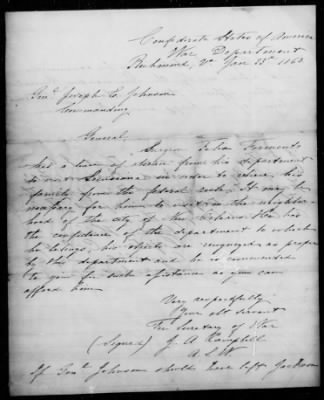 Confederate States of America
War Department
Richmond, Va Jan 23th 1863
Genl Joseph E. Johnson
Commanding
General,
Surgeon
has a leave of absence from his department
to visit Louisiana in order to relieve his
family from the federal rule. It may be
necessary for him to in the neighbor-
hood of the city of New Orleans. He has
the confidence of the department to which
he belongs, his are as
to this department and he is commended
to you for such assistance as you can
afford him
Very respectfully
Your obt servant
The Secretary of War
(Signed) J. A. Campbell
A. S. W.
If Genl Johnson should have left Jackson